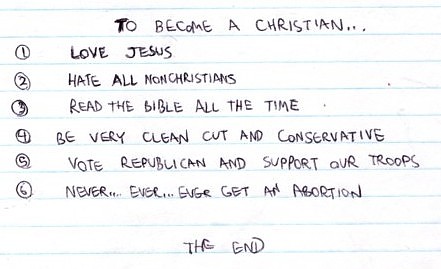 TO BECOME A CHRISTIAN...
① LOVE JESUS
② HATE ALL NONCHRISTIANS
③ READ THE BIBLE ALL THE TIME .
④ BE VERY CLEAN CUT AND CONSERVATIVE
⑤ VOTE REPUBLICAN AND SUPPORT OUR TROOPS
⑥ NEVER.... EVER... EVER GET AN ABORTION
THE END